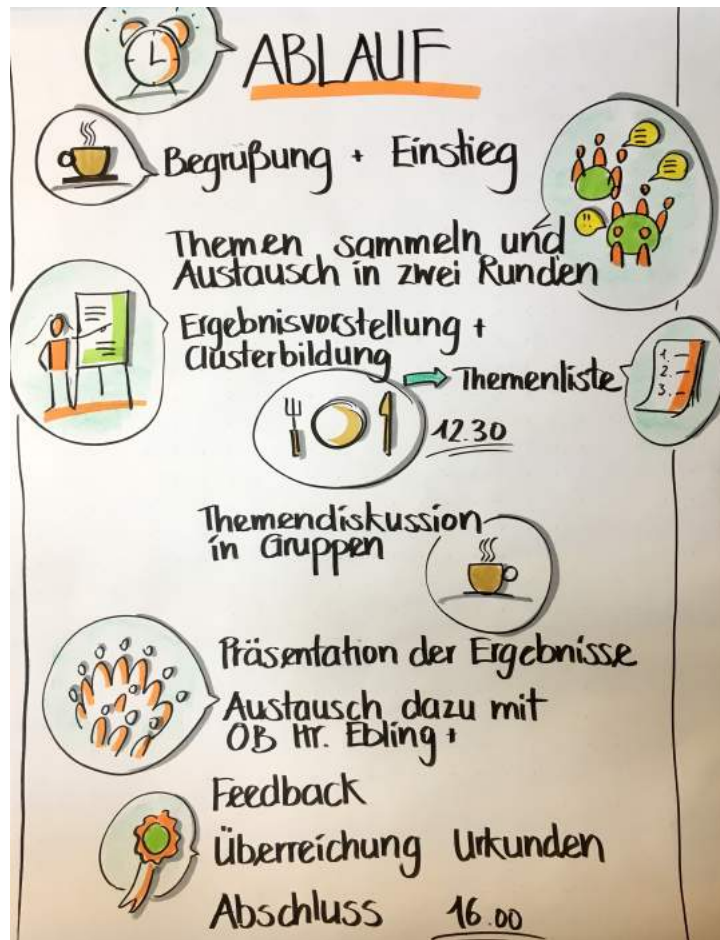 ABLAUF
Begrüßung + Einstieg
Themen sammeln und
Austausch in zwei Runden
Ergebnisvorstellung +
Clusterbildung
Themenliste
1.
2.
3.
12.30
Themendiskussion
in Gruppen
Präsentation der Ergebnisse
Austausch dazu mit
OB Hr. Ebling +
Feedback
Überreichung Urkunden
Abschluss 16.00